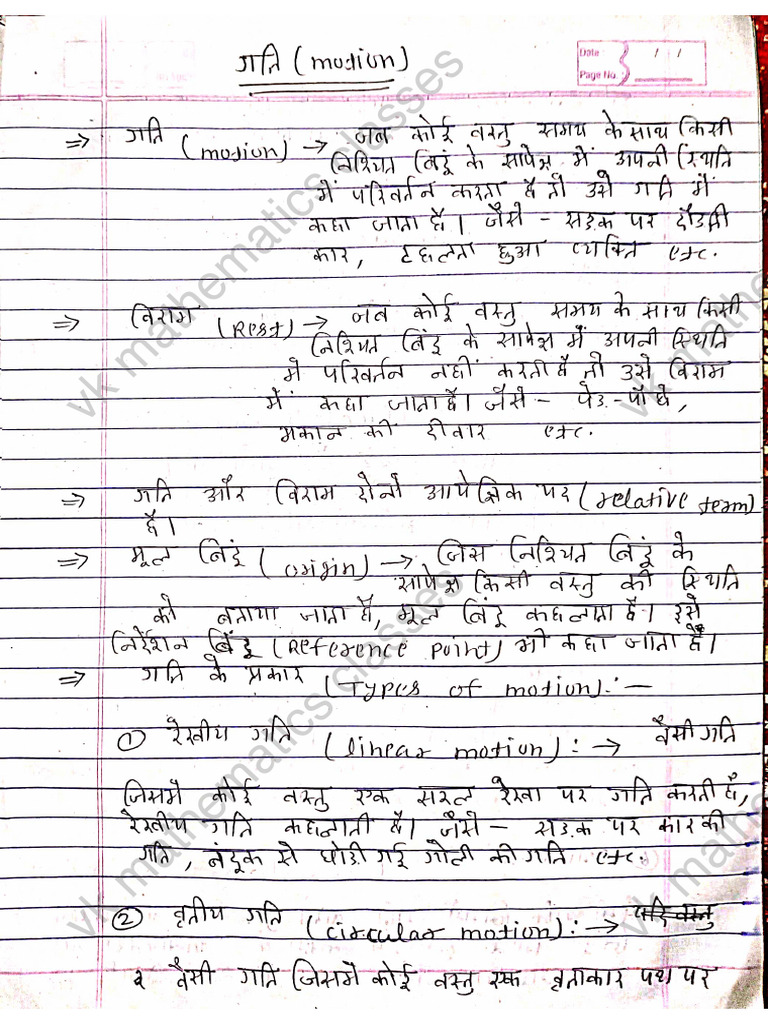 गति (motion)
Date / /
Page No.
⇒ गति (motion) → जब कोई वस्तु समय के साथ किसी
निश्चित बिंदू के सापेक्ष में अपनी स्थिति
में परिवर्तन करता है तो उसे गति में
कहा जाता है। जैसे - सड़क पर दौड़ती
कार, टहलता हुआ व्यक्ति etc.
⇒ विराम (Rest) → जब कोई वस्तु समय के साथ किसी
निश्चित बिंदू के सापेक्ष में अपनी स्थिति
में परिवर्तन नहीं करती है तो उसे विराम
में कहा जाता है। जैसे - पेड़-पौधे,
मकान की दीवार etc.
⇒ गति और विराम दोनों आपेक्षिक पद (relative team)
है।
⇒ मूल बिंदू (origin) → जिस निश्चित बिंदू के
सापेक्ष किसी वस्तु की स्थिति
को बताया जाता है, मूल बिंदू कहलाता है। इसे
निर्देशन बिंदू (Reference point) भी कहा जाता है।
⇒ गति के प्रकार (Types of motion) :-
① रेखीय गति (linear motion) : → वैसी गति
जिसमें कोई वस्तु एक सरल रेखा पर गति करती है,
रेखीय गति कहलाती है। जैसे - सड़क पर कार की
गति, बंदूक से छोड़ी गई गोली की गति etc.
② वृतीय गति (circular motion) : → यदि वस्तु
वैसी गति जिसमें कोई वस्तु एक वृताकार पथ पर
vk mathematics classes
vk mathematics classes
vk mathe
vk mathe